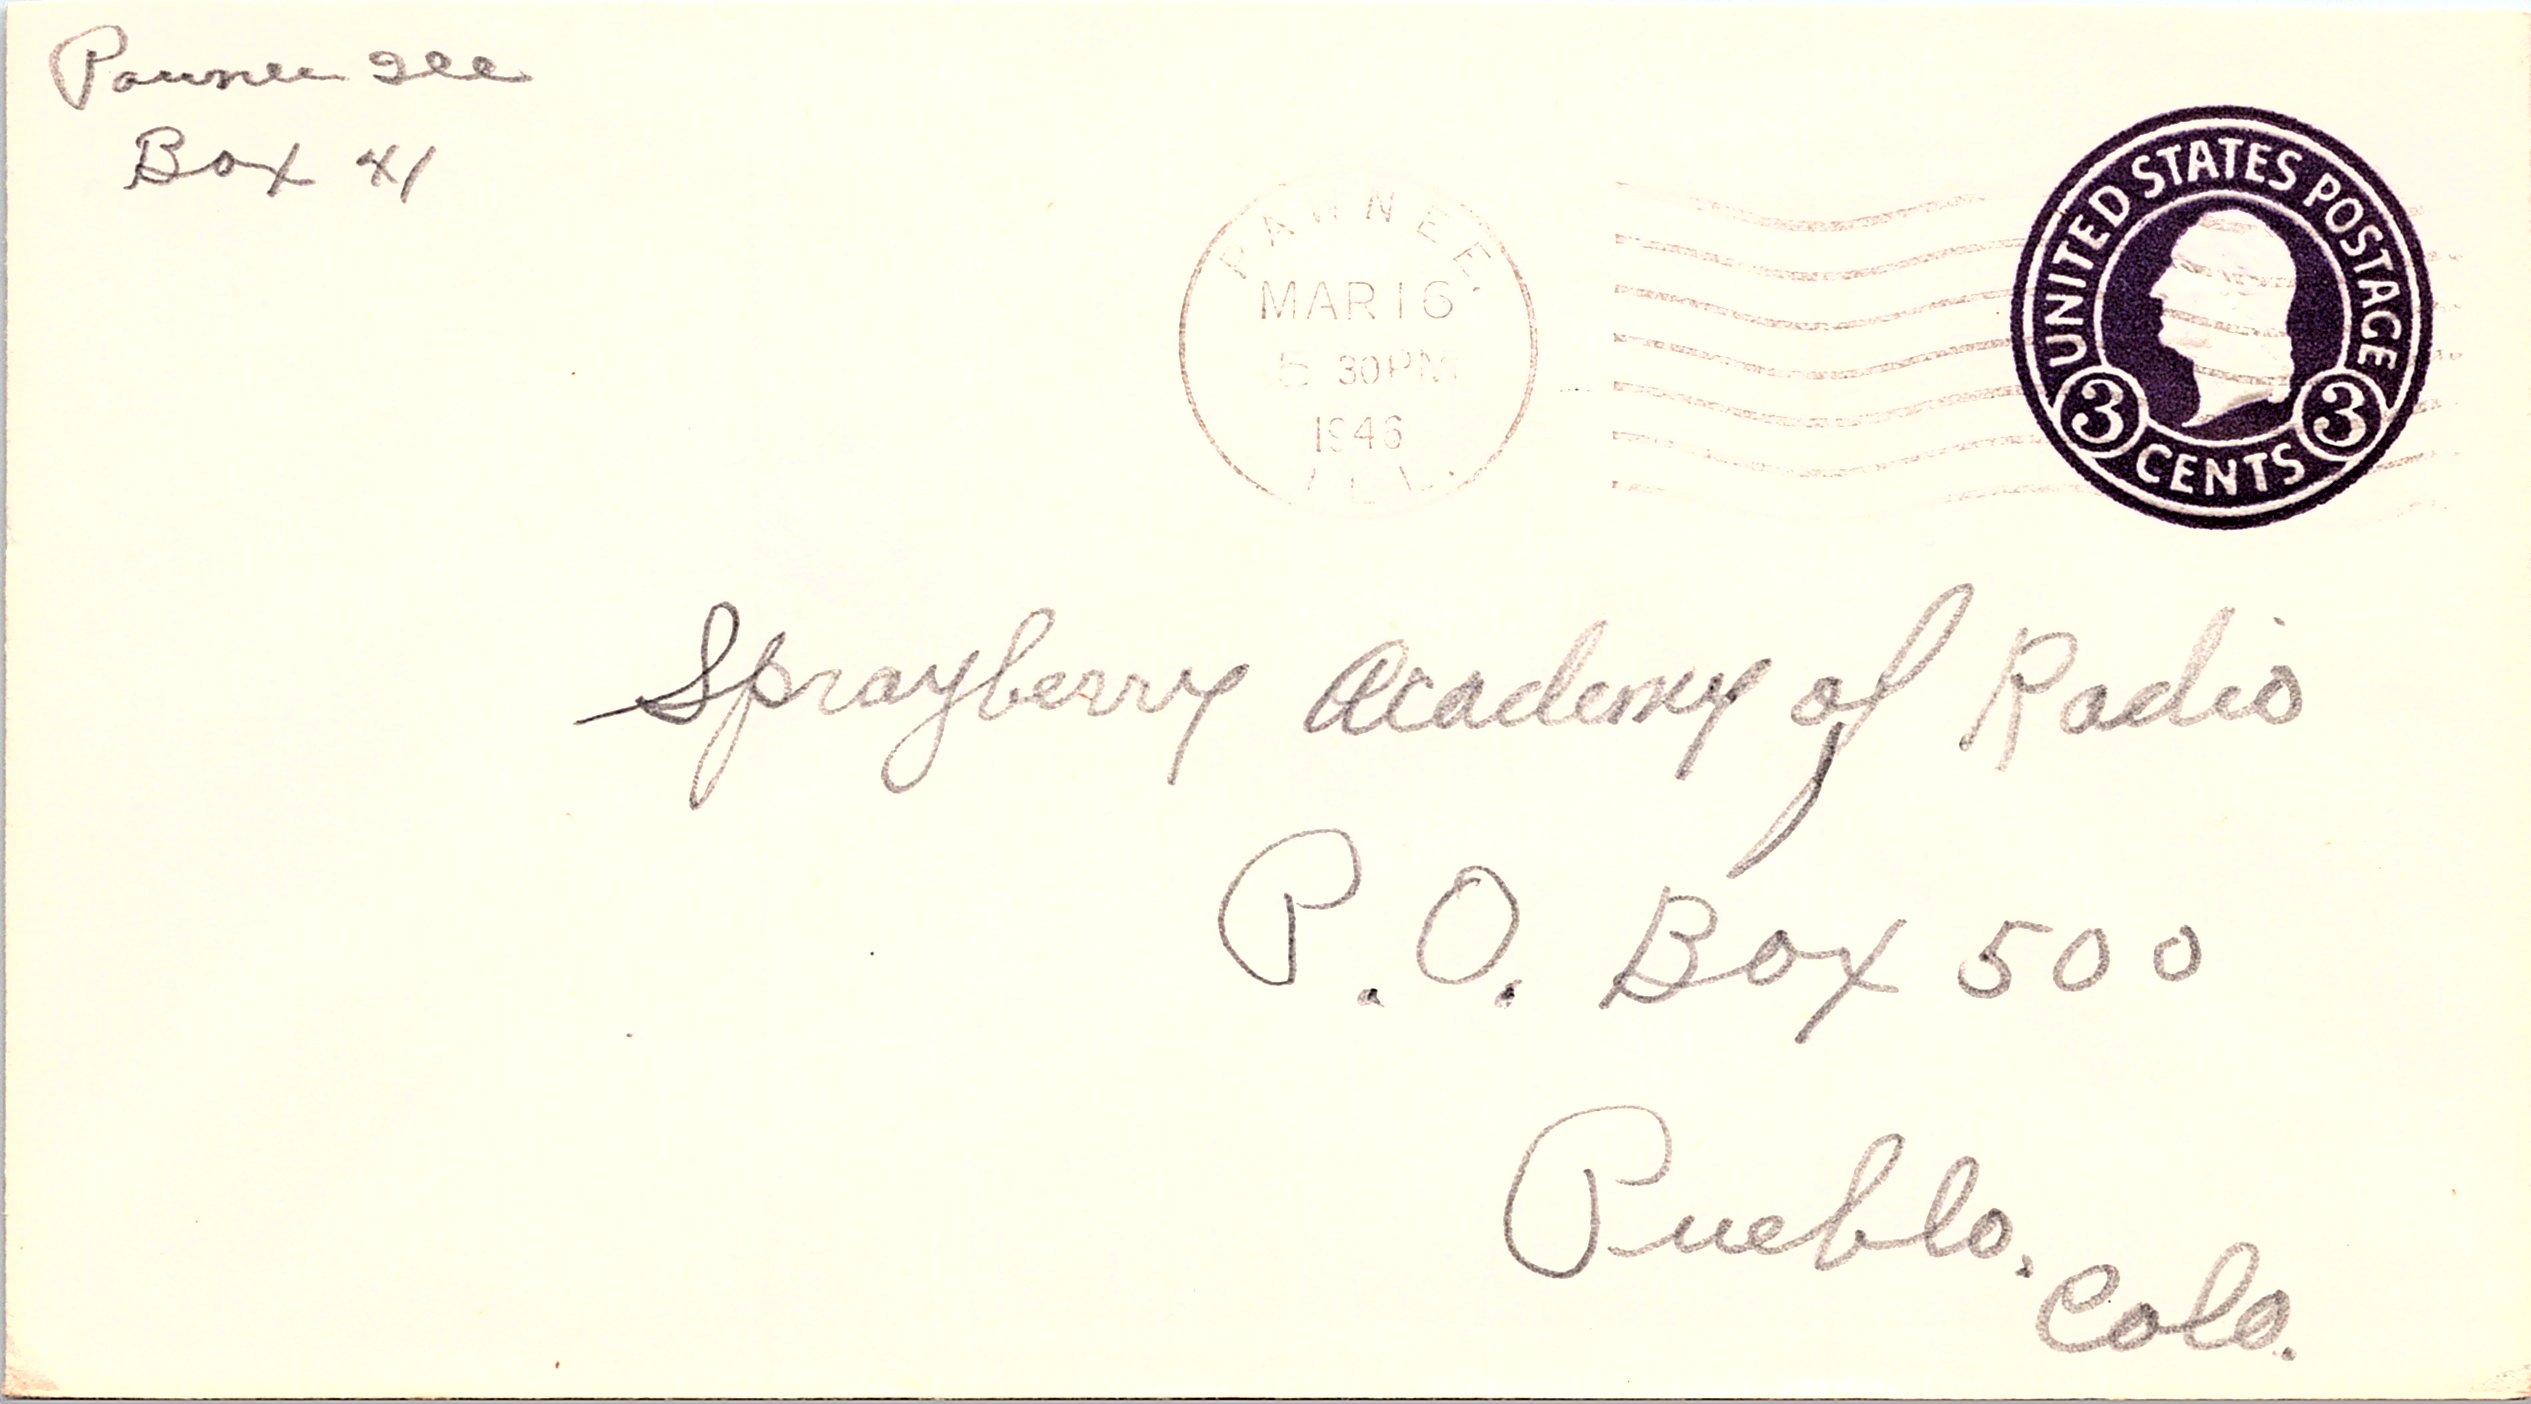 Pawnee Ill
Box 41
PAWNEE
MAR 16
5 30 PM
1946
ILL.
UNITED STATES POSTAGE
3 CENTS 3
Sprayberry Academy of Radio
P.O. Box 500
Pueblo.
Colo.